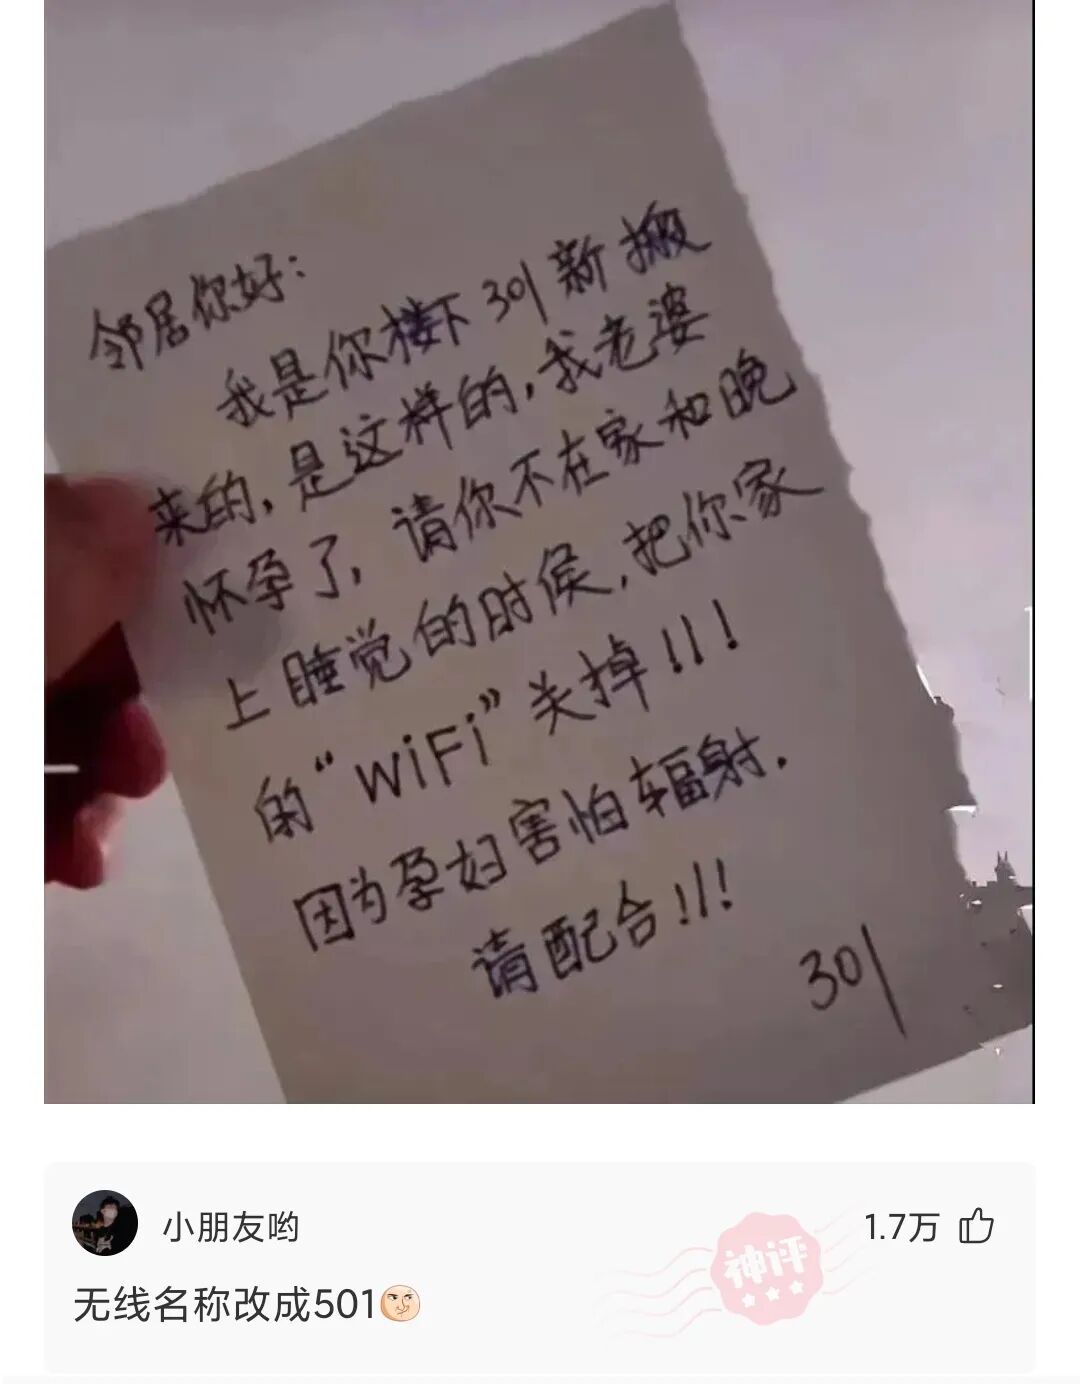 邻居你好：
我是你楼下301新搬
来的，是这样的，我老婆
怀孕了，请你不在家和晚
上睡觉的时候，把你家
的“WiFi”关掉！！！
因为孕妇害怕辐射．
请配合！！！
301
小朋友哟
1.7万
神评
无线名称改成501